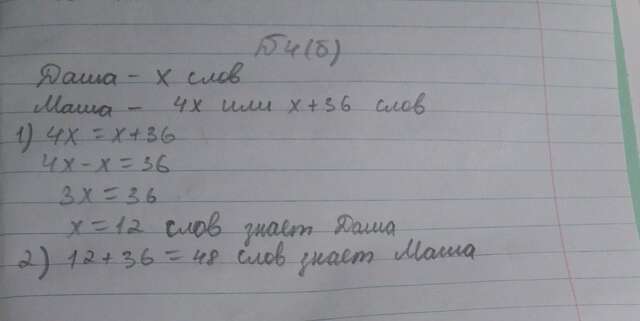 Б4(б)
Даша - x слов
Маша - 4x или x+36 слов
1) 4x = x+36
4x-x=36
3x=36
x=12 слов знает Даша
2) 12+36=48 слов знает Маша